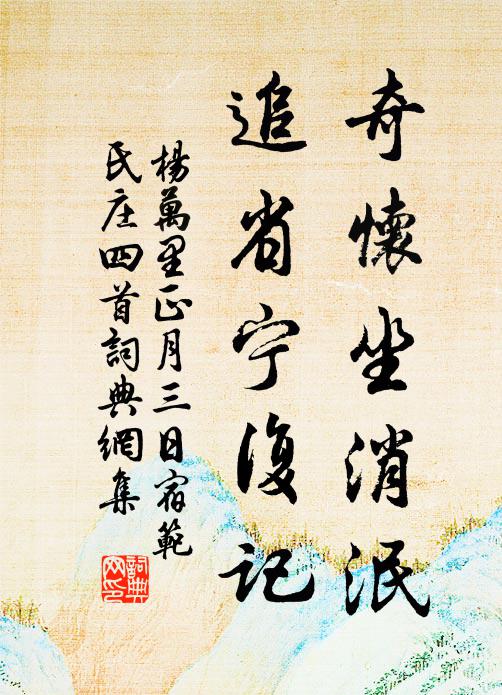 奇懷坐消泯
追省宁復記
楊萬里正月三日宿範
氏庄四首詞典網集
詞典
网印